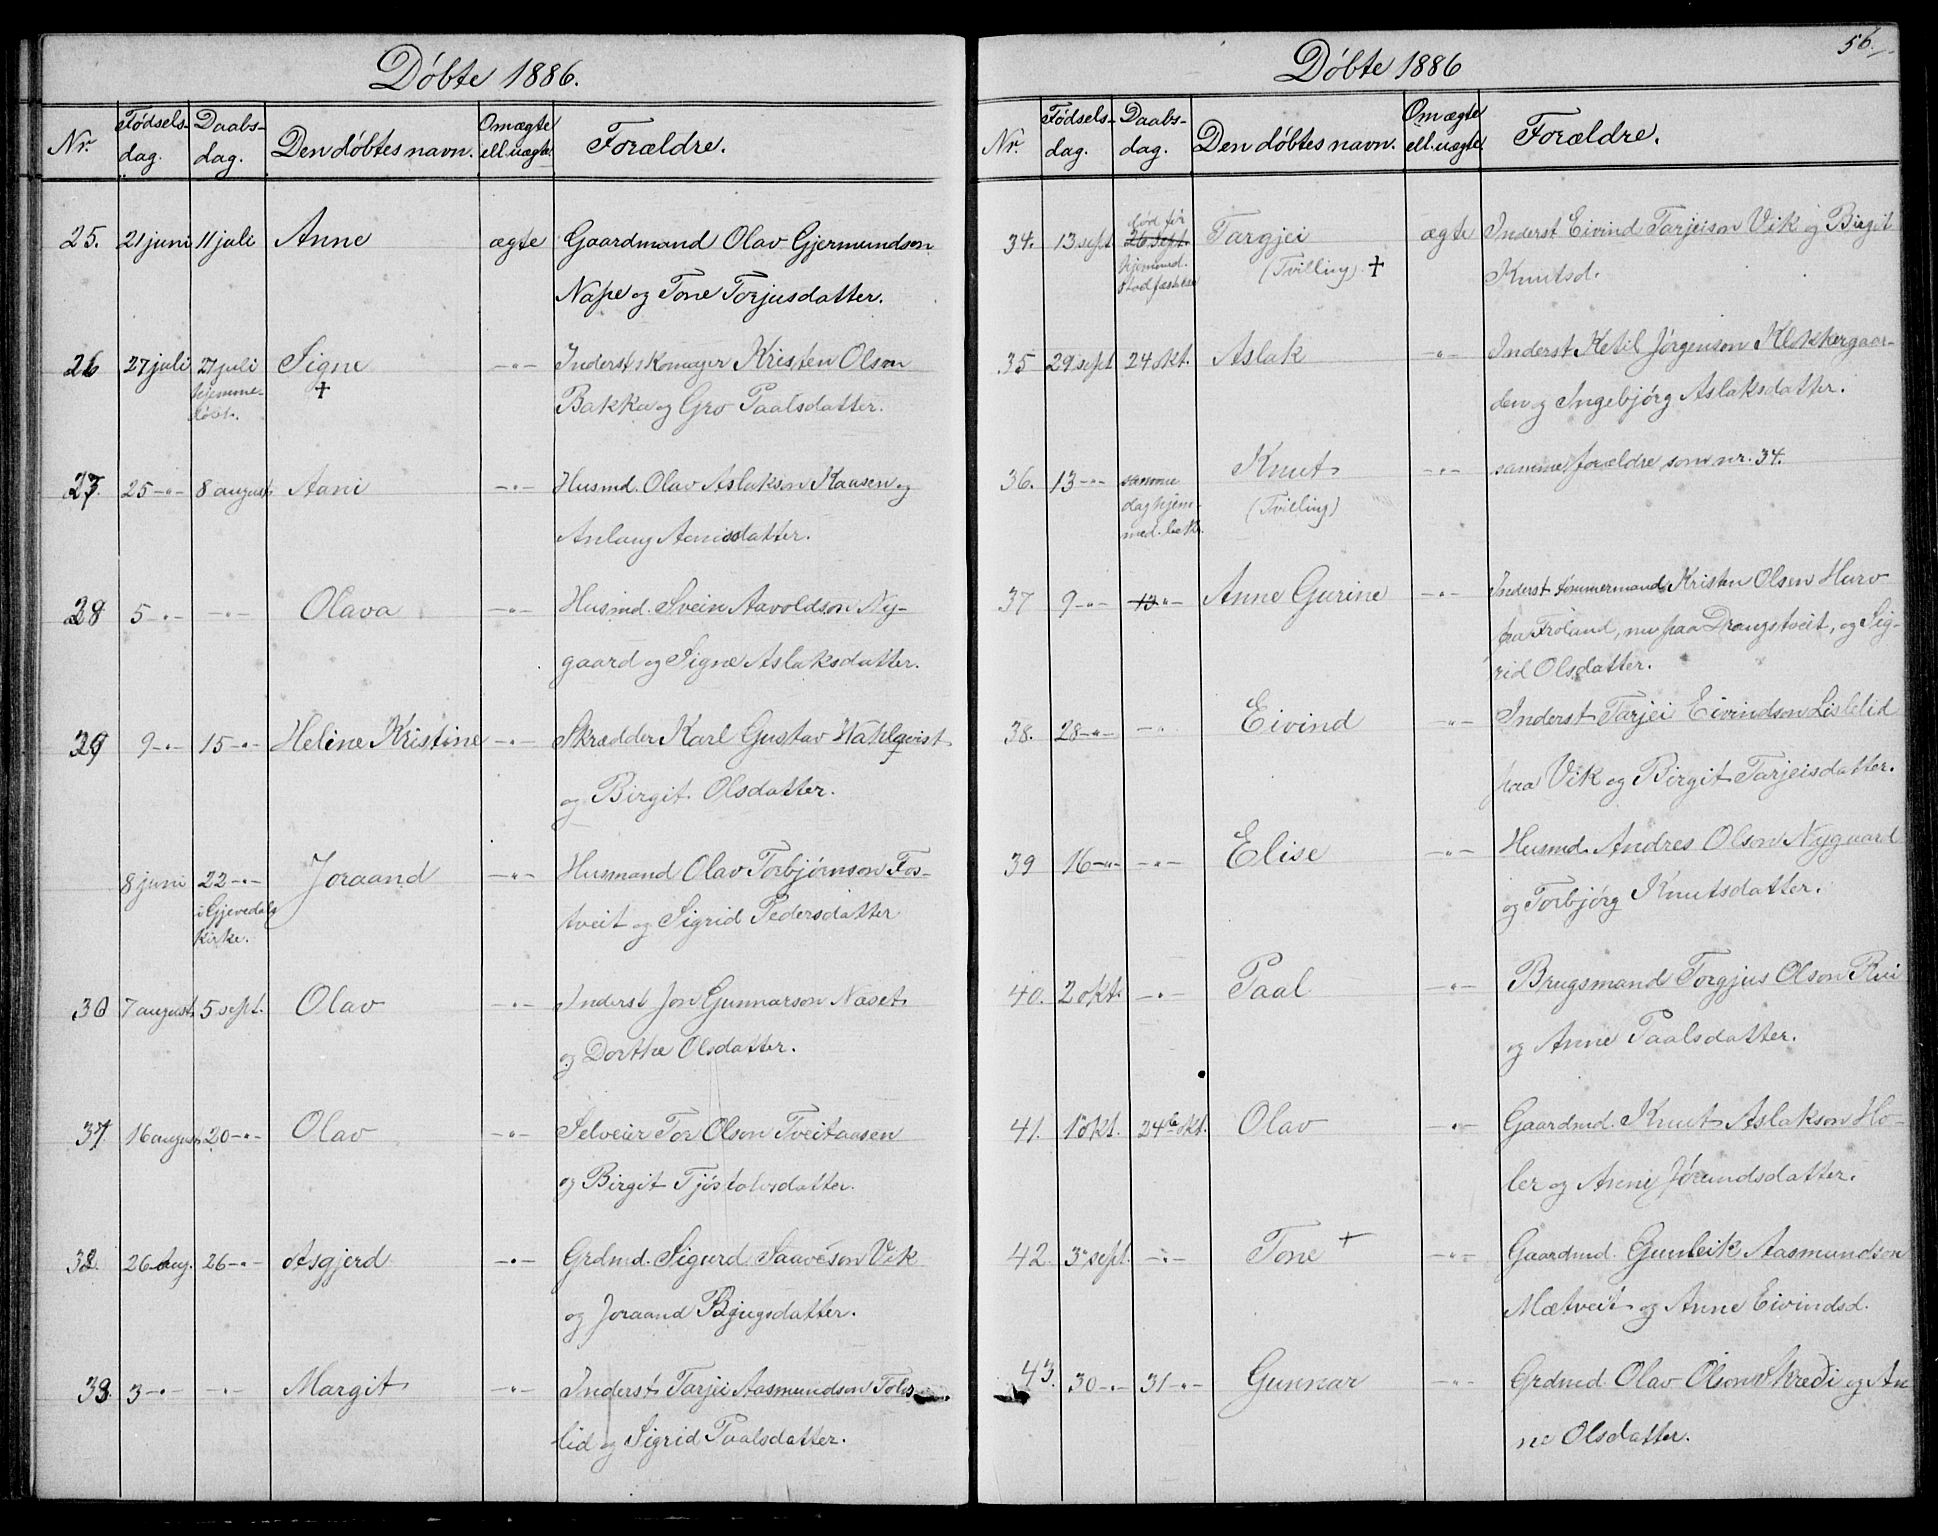 Døbte 1886.
Nr. Fødsels-dag. Daabs-dag. Den døbtes navn. Om ægte ell. uægte Forældre.
25. 21 juni 11 juli Anne ægte Gaardmand Olav Gjermundson
Nape og Tone Torjusdatter.
26 27 juli 27 juli Signe -"- Inderst, skomager Kristen Olson
hjemme- † Bakka og Gro Paalsdatter.
døbt.
27. 25 -"- 8 august Aani -"- Husmd. Olav Aslakson Kaasen og
Anlaug Aanisdatter.
28 5 -"- -"- Olava -"- Husmd. Svein Aavoldson Ny-
gaard og Signe Aslaksdatter.
29 9 -"- 15 -"- Heline Kristine -"- Skrædder Karl Gustav Wahlqvist
og Birgit Olsdatter.
8 juni 22 -"- Joraand -"- Husmand Olav Torbjørnson Fos-
i Gjevedals tveit og Sigrid Pedersdatter
kirke.
30 7 august 5 sept. Olav -"- Inderst Jon Gunnarson Næset
og Dorthe Olsdatter.
31 16 august 20 -"- Olav -"- Selveier Tor Olson Tveitaasen
og Birgit Tjøstolvsdatter.
32. 26 Aug. 26 -"- Asgjerd -"- Grdmd. Sigurd Saaveson Vik
og Joraand Bjugsdatter.
33. 3 -"- -"- Margit -"- Inderst Tarjei Aasmundson Tols
lid og Sigrid Paalsdatter.
56.
Døbte 1886
Nr. Fødsels-dag. Daabs-dag. Den døbtes navn. Om ægte ell. uægte Forældre.
død før
34. 13 sept 26 sept. Targjei ægte Inderst Eivind Tarjeison Vik og Birgit
hjemmed. (Tvilling). † Knutsd.
stadfæstelse
35 29 sept 24 okt. Aslak -"- Inderst Ketil Jørgenson Klokkergaar-
den og Ingebjørg Aslaksdatter.
36. 13 -"- samme Knut -"- samme forældre som nr. 34.
dag hjem- (Tvilling)
med. bekr.
37 9 -"- 13 -"- Anne Gurine -"- Inderst tømmermand Kristen Olsen Hurv
fra Froland, nu paa Drangstveit, og Sig-
rid Olsdatter.
38. 28 -"- -"- Eivind -"- Inderst Tarjei Eivindson Lislelid
paa Vik og Birgit Tarjeisdatter.
39 16 -"- -"- Elise -"- Husmd. Andres Olson Nygaard
og Torbjørg Knutsdatter.
40. 2 okt. -"- Paal -"- Brugsmand Torgjus Olson Rui
og Anne Paalsdatter.
41. 1 okt. 24de okt. Olav -"- Gaardmd. Knut Aslakson Ho-
ler og Anne Jørundsdatter.
42. 3 sept. -"- Tone + -"- Gaardmd. Gunleik Aasmundson
Mætveit og Anne Eivindsd.
43. 30 -"- 31 -"- Gunnar -"- Grdmd. Olav Olson Skredi og An
ne Olsdatter.